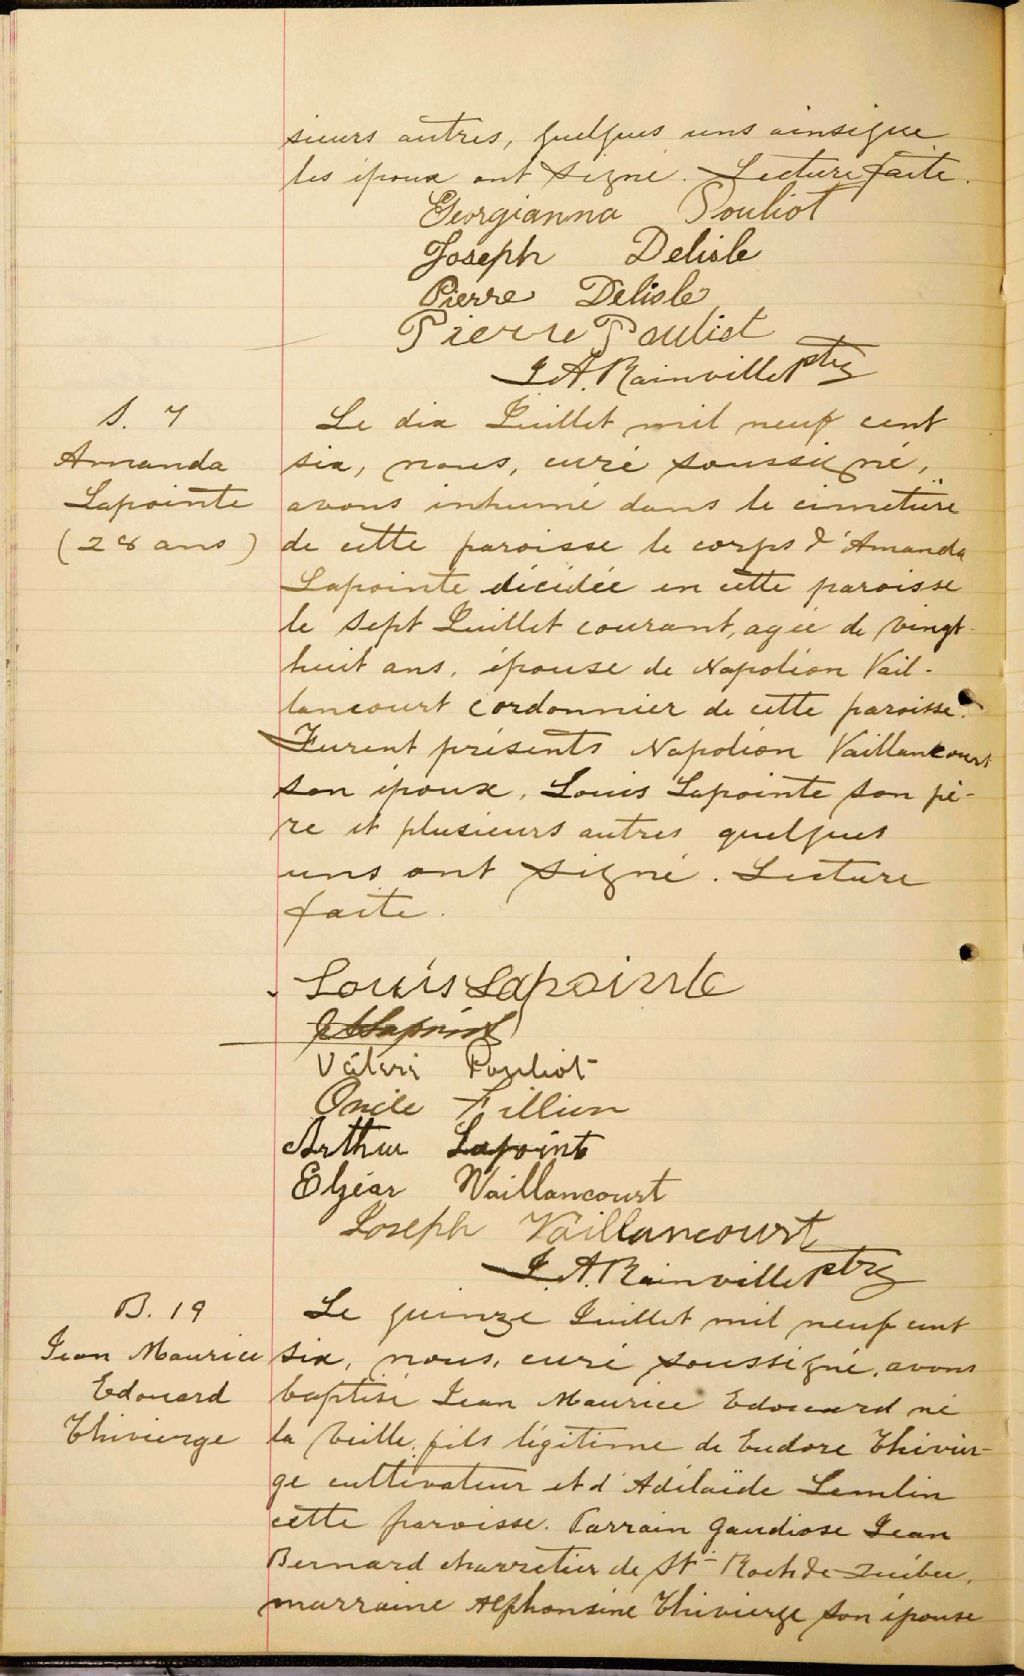 sieurs autres, quelques uns ainsique
les époux ont signé. Lecture faite.
Georgianna Pouliot
Joseph Delisle
Pierre Delisle
Pierre Pouliot
J. A. Rainville ptre
S. 7
Amanda
Lapointe
(28 ans)
Le dix Juillet mil neuf cent
six, nous, curé soussigné,
avons inhumé dans le cimetière
de cette paroisse le corps d'Amanda
Lapointe décédée en cette paroisse
le sept Juillet courant, agée de vingt-
huit ans, épouse de Napoléon Vail-
lancourt cordonnier de cette paroisse.
Furent présents Napoléon Vaillancourt
son époux, Louis Lapointe son pè-
re et plusieurs autres quelques
uns ont signé. Lecture
faite.
Louis Lapointe
Valéri Pouliot
Onile Fillion
Arthur Lapointe
Elzéar Vaillancourt
Joseph Vaillancourt
J. A. Rainville ptre
B. 19
Jean Maurice
Edouard
Thivierge
Le quinze Juillet mil neuf cent
six, nous, curé soussigné, avons
baptisé Jean Maurice Edouard né
la veille, fils légitime de Eudore Thivier-
ge cultivateur et d'Adélaïde Lemelin
cette paroisse. Parrain Gaudiose Jean
Bernard charretier de St-Roch de Québec,
marraine Alphonsine Thivierge son épouse